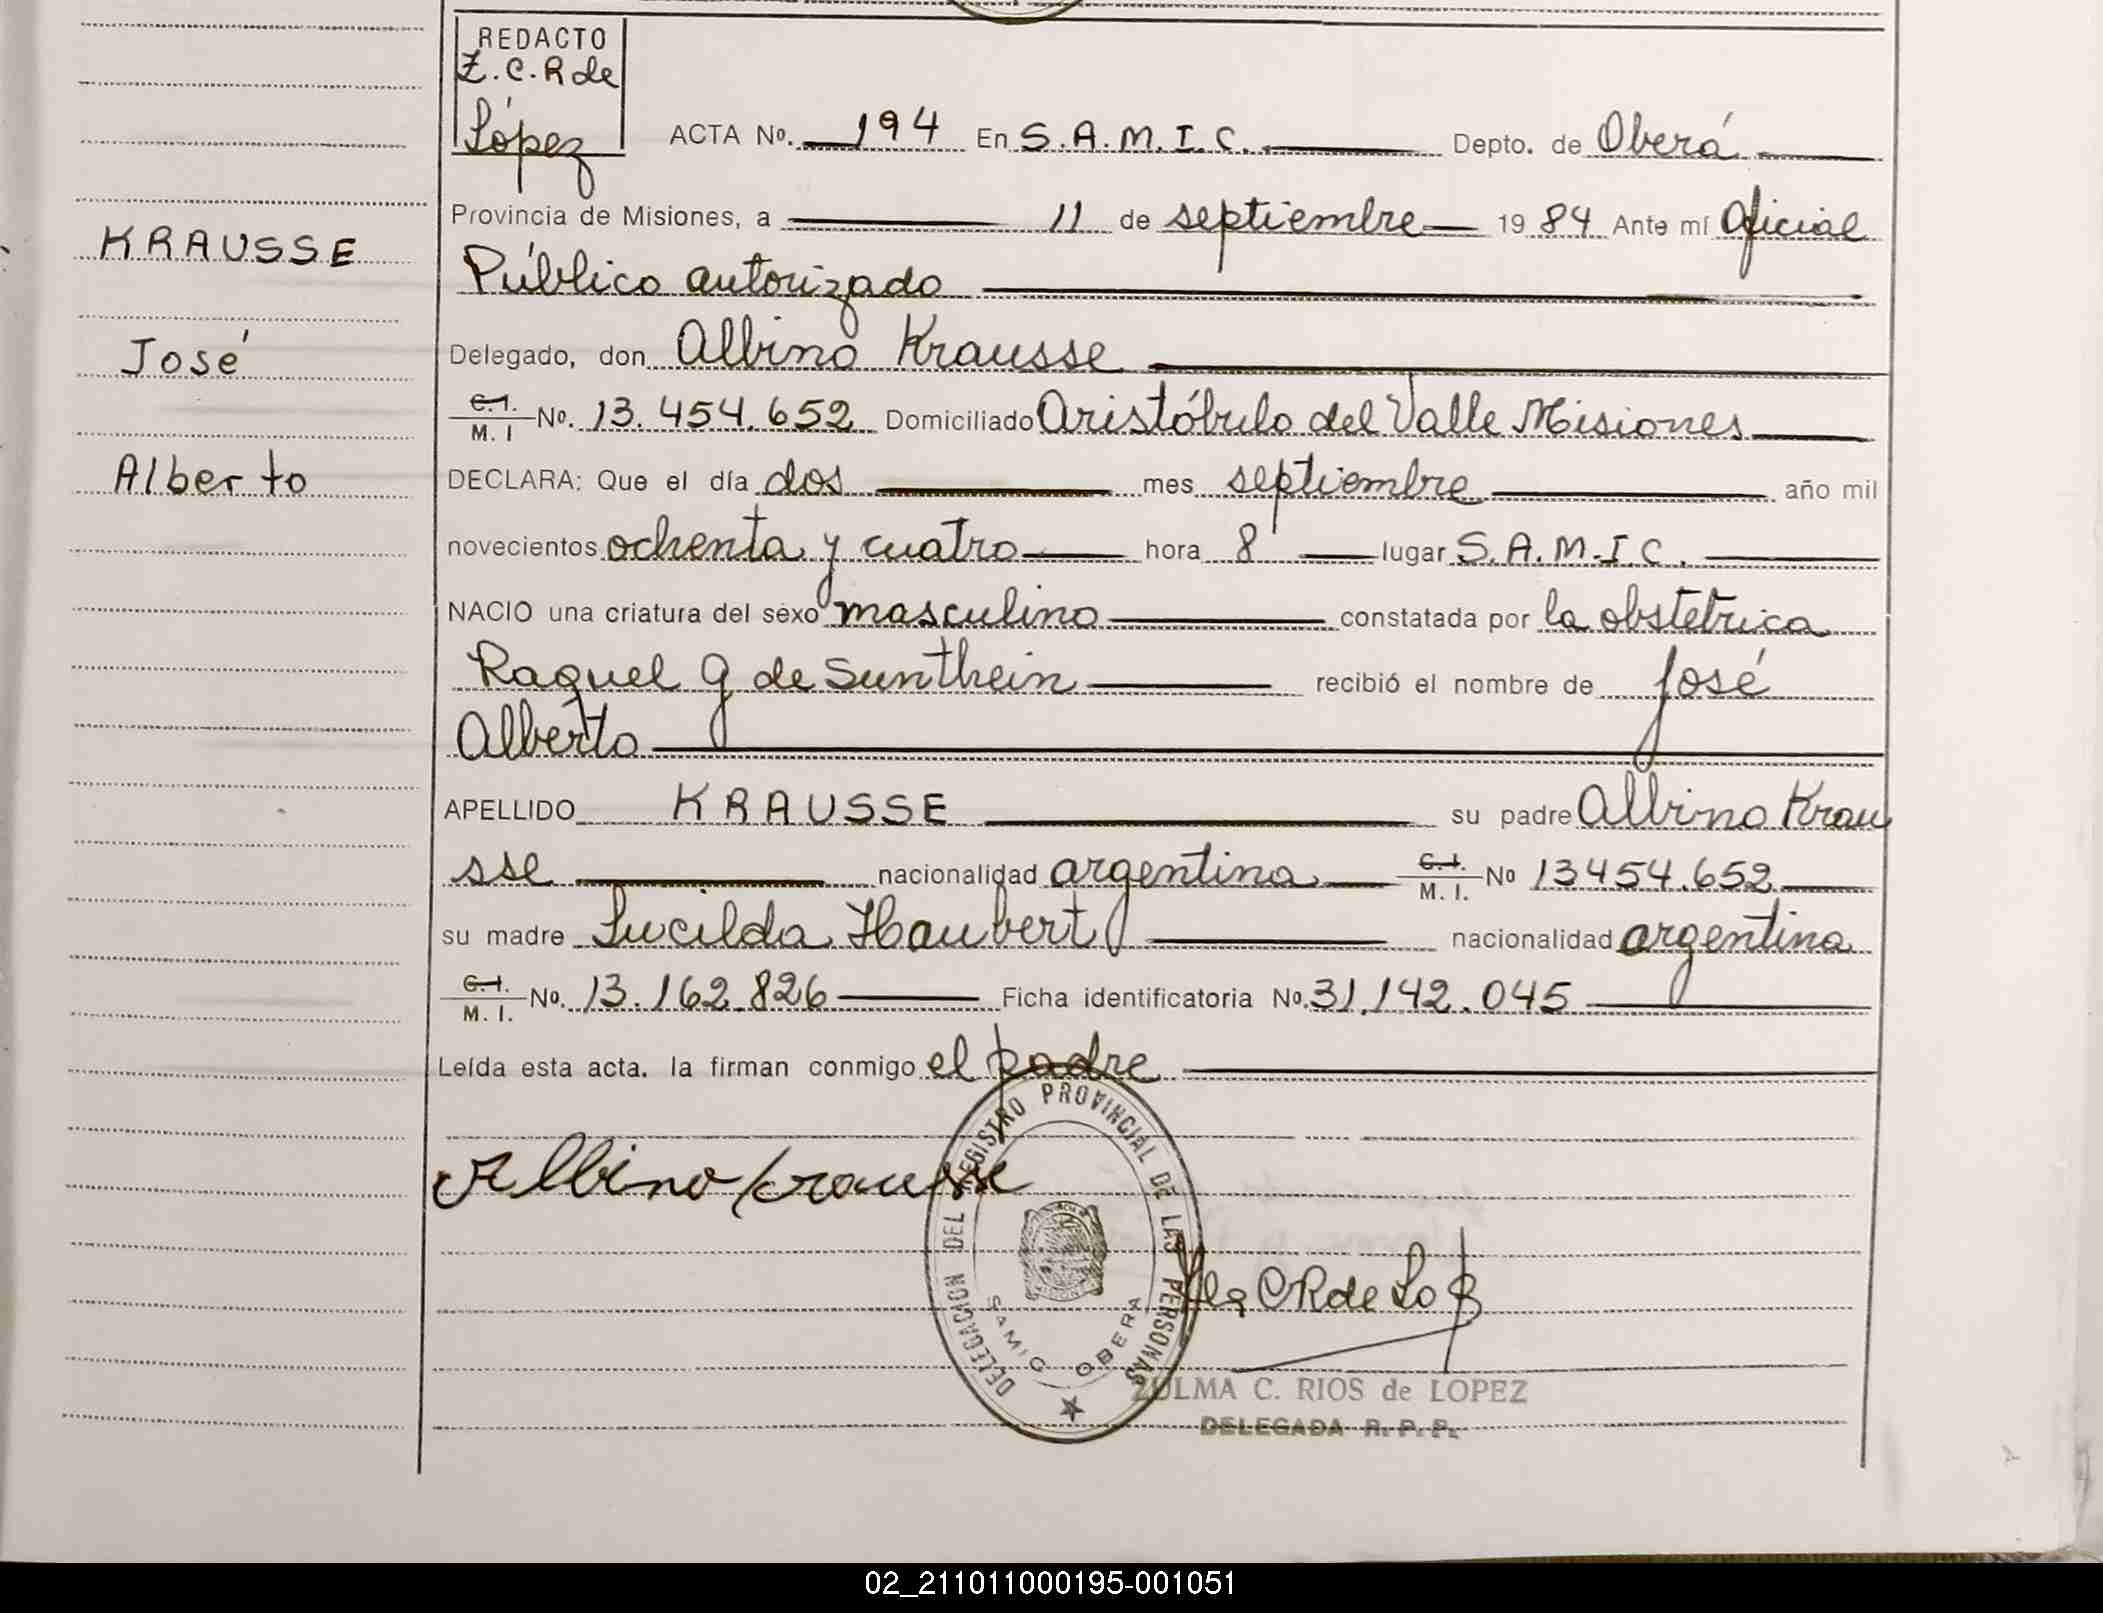 REDACTO
Z. C. R de
López
ACTA No. 194 En S. A. M. I. C. Depto. de Oberá
Provincia de Misiones, a 11 de septiembre 19 84 Ante mí Oficial
Público autorizado
Delegado, don Albino Krausse
C. I. M. I No. 13. 454. 652 Domiciliado Aristóbulo del Valle Misiones
DECLARA: Que el día dos mes septiembre año mil
novecientos ochenta y cuatro hora 8 lugar S. A. M. I C.
NACIO una criatura del sexo masculino constatada por la obstetrica
Raquel G de Sunthein recibió el nombre de José
Alberto
APELLIDO KRAUSSE su padre Albino Krau
sse nacionalidad argentina C. I. M. I. No 13454.652
su madre Lucilda Haubert nacionalidad argentina
C. I. M. I. No. 13. 162. 826 Ficha identificatoria No. 31.142. 045
Leída esta acta. la firman conmigo el padre
Albino Krausse
DELEGACION DEL REGISTRO PROVINCIAL DE LAS PERSONAS
SAMIC OBERA
C R de
ZULMA C. RIOS de LOPEZ
DELEGADA R. P. P.
KRAUSSE
José
Alberto
02_211011000195-001051